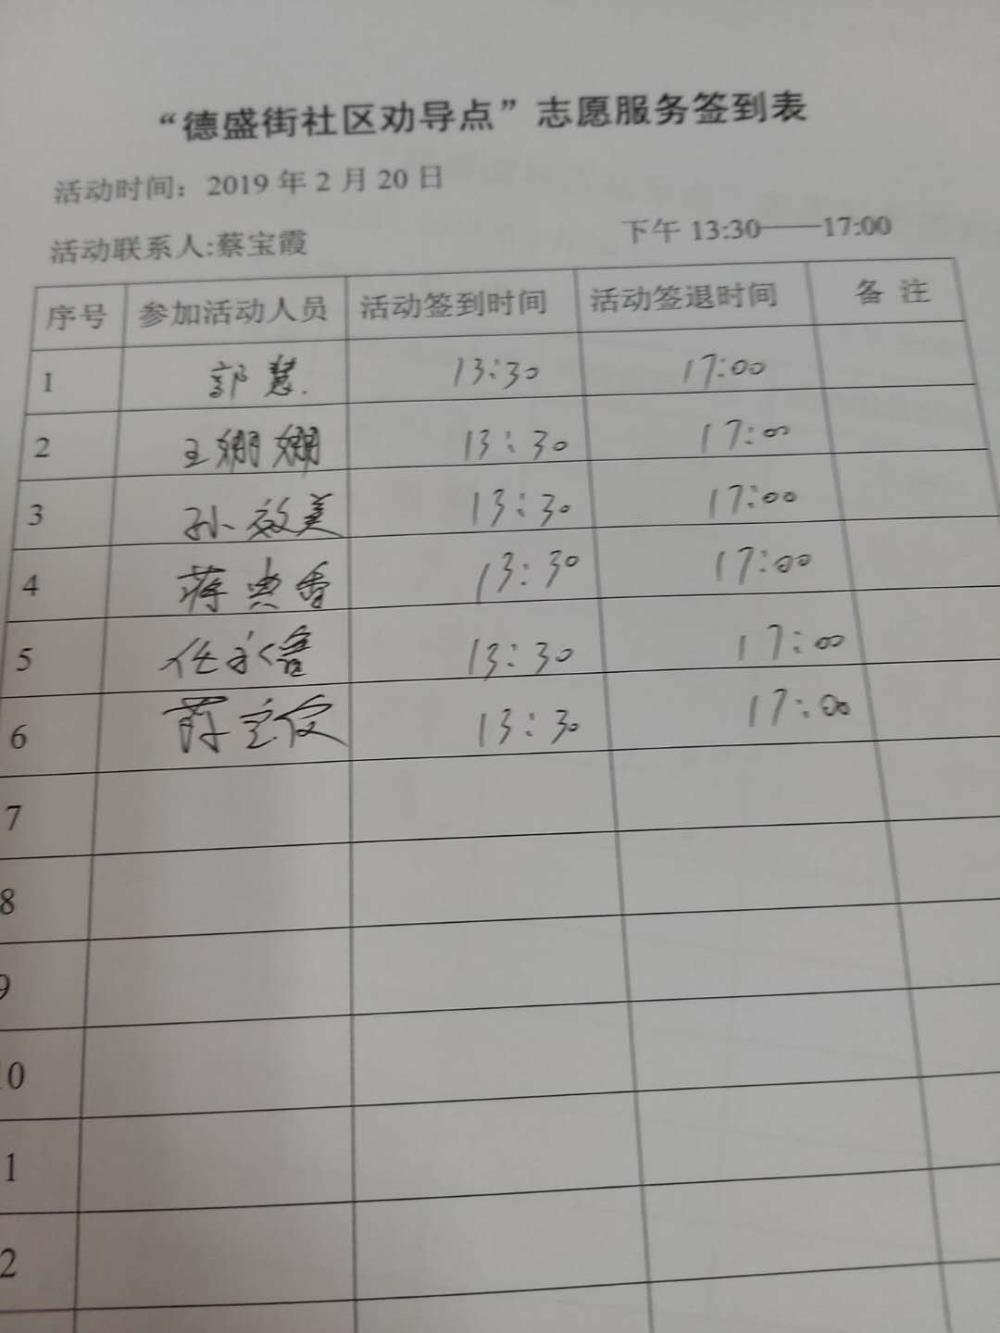 “德盛街社区劝导点”志愿服务签到表
活动时间：2019 年 2 月 20 日
活动联系人:蔡宝霞 下午 13:30——17:00
序号 参加活动人员 活动签到时间 活动签退时间 备 注
1 郭慧. 13:30 17:00
2 王姗姗 13:30 17:00
3 孙效美 13:30 17:00
4 蒋典香 13:30 17:00
5 任永 13:30 17:00
6 13:30 17:00
7
8
9
10
1
2